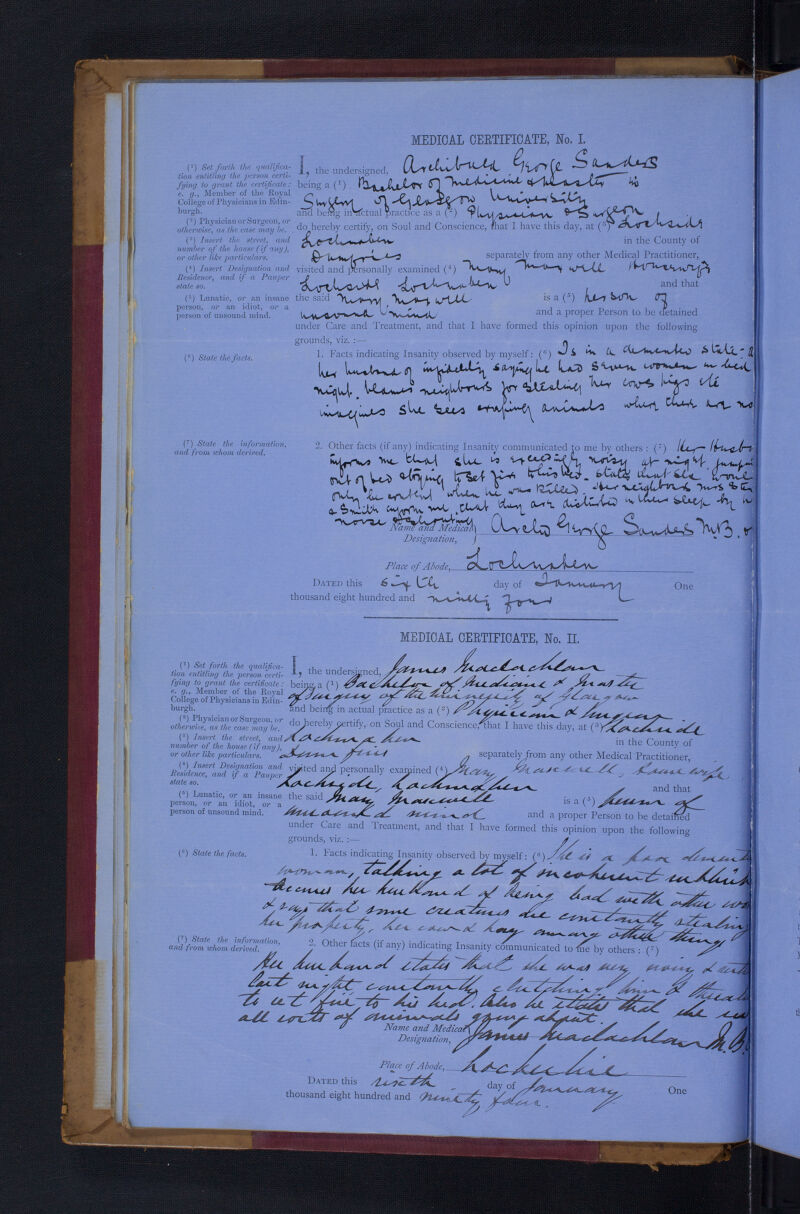 MEDICAL CERTIFICATE, No. I.
(¹) Set forth the qualifica-
tion entitling the person certi-
fying to grant the certificate:
e. g., Member of the Royal
College of Physicians in Edin-
burgh.
(²) Physician or Surgeon, or
otherwise, as the case may be.
(³) Insert the street, and
number of the house (if any),
or other like particulars.
(⁴) Insert Designation and
Residence, and if a Pauper
state so.
(⁵) Lunatic, or an insane
person, or an idiot, or a
person of unsound mind.
I, the undersigned, Archibald George Sanders
being a (¹) Bachelor of Medicine & Master in
Surgery of Glasgow University
and being in actual practice as a (²) Physician & Surgeon
do hereby certify, on Soul and Conscience, that I have this day, at (³) Lochside
Lochmaben in the County of
Dumfries separately from any other Medical Practitioner,
visited and personally examined (⁴) Mary Maxwell Housewife
Lochside Lochmaben and that
the said Mary Maxwell is a (⁵) person of
unsound mind and a proper Person to be detained
under Care and Treatment, and that I have formed this opinion upon the following
grounds, viz. :—
(⁶) State the facts.
1. Facts indicating Insanity observed by myself: (⁶) Is in a demented state-
her husband of infidelity saying he had seven women in bed
night. blames neighbours for stealing her cows pigs etc
imagines she sees animals where there are no
(⁷) State the information,
and from whom derived.
2. Other facts (if any) indicating Insanity communicated to me by others: (⁷) Her Husb
informs me that she is exceedingly noisy at night.
out of bed & trying to set fire to his bed. states that she would
only be content when he was killed. Her neighbours Miss
& Smith inform me that they are disturbed in their sleep by
noise & shouting
Name and Medical
Designation, Archd George Sanders M.B. &
Place of Abode, Lochmaben
DATED this sixth day of January One
thousand eight hundred and ninety four
MEDICAL CERTIFICATE, No. II.
(¹) Set forth the qualifica-
tion entitling the person certi-
fying to grant the certificate:
e. g., Member of the Royal
College of Physicians in Edin-
burgh.
(²) Physician or Surgeon, or
otherwise, as the case may be.
(³) Insert the street, and
number of the house (if any),
or other like particulars.
(⁴) Insert Designation and
Residence, and if a Pauper
state so.
(⁵) Lunatic, or an insane
person, or an idiot, or a
person of unsound mind.
I, the undersigned, James Maclachlan
being a (¹) Bachelor of Medicine & Master
of Surgery of the University of Glasgow
and being in actual practice as a (²) Physician & Surgeon
do hereby certify, on Soul and Conscience, that I have this day, at (³) Lochside
Lochmaben in the County of
Dumfries separately from any other Medical Practitioner,
visited and personally examined (⁴) Mary Maxwell, housewife
Lochside, Lochmaben and that
the said Mary Maxwell is a (⁵) person of
unsound mind and a proper Person to be detained
under Care and Treatment, and that I have formed this opinion upon the following
grounds, viz. :—
(⁶) State the facts.
1. Facts indicating Insanity observed by myself: (⁶) She is a poor dement
woman, talking a lot of incoherent rubbish
Accuses her husband of being bad with other wo
& says that some creatures are constantly stealing
her property, her cow & hay among other things
(⁷) State the information,
and from whom derived.
2. Other facts (if any) indicating Insanity communicated to me by others: (⁷)
Her husband states that she was very noisy &
last night constantly clutching him & threat
to set fire to his bed. Also he states that she see
all sorts of animals going about.
Name and Medical
Designation, James Maclachlan M.B.
Place of Abode, Lockerbie
DATED this sixth day of January One
thousand eight hundred and ninety four.